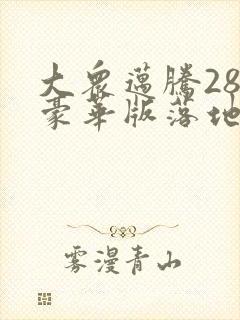 大众邁騰28
豪華版落地
雾漫青山